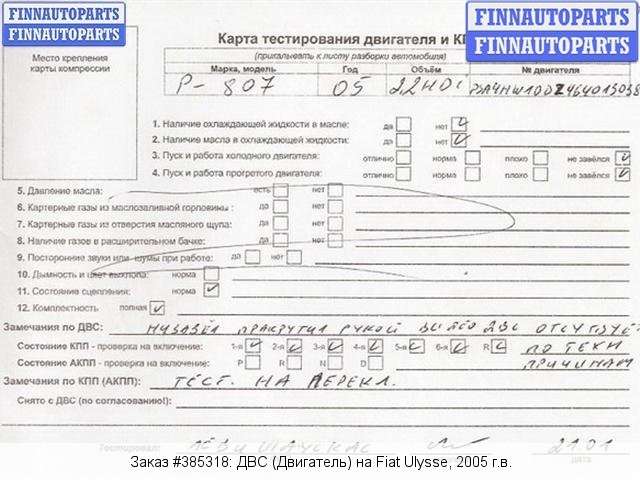 FINNAUTOPARTS
FINNAUTOPARTS
FINNAUTOPARTS
FINNAUTOPARTS
Место крепления
карты компрессии
Карта тестирования двигателя и КП
(прикалывать к листу разборки автомобиля)
Марка, модель Год Объём № двигателя
P-807 05 22HDi
1. Наличие охлаждающей жидкости в масле: да нет
2. Наличие масла в охлаждающей жидкости: да нет
3. Пуск и работа холодного двигателя: отлично норма плохо не завёлся
4. Пуск и работа прогретого двигателя: отлично норма плохо не завёлся
5. Давление масла: есть нет
6. Картерные газы из маслозаливной горловины: да нет
7. Картерные газы из отверстия масляного щупа: да нет
8. Наличие газов в расширительном бачке: да нет
9. Посторонние звуки или шумы при работе: да нет
10. Дымность и цвет выхлопа: норма
11. Состояние сцепления: норма
12. Комплектность полная
Замечания по ДВС: прокрутил рукой видео ДВС отсутвует
Состояние КПП - проверка на включение: 1-я 2-я 3-я 4-я 5-я 6-я R по техн
Состояние АКПП - проверка на включение: P R N D причинам
Замечания по КПП (АКПП): тест. на перекл.
Снято с ДВС (по согласованию!):
Тестировал: 21.01
дата
Заказ #385318: ДВС (Двигатель) на Fiat Ulysse, 2005 г.в.